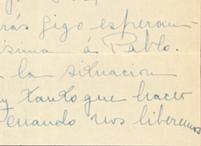 rás sigo esperan
isima á Pablo.
la situacion
y tanto que hacer
cuando nos liberemos